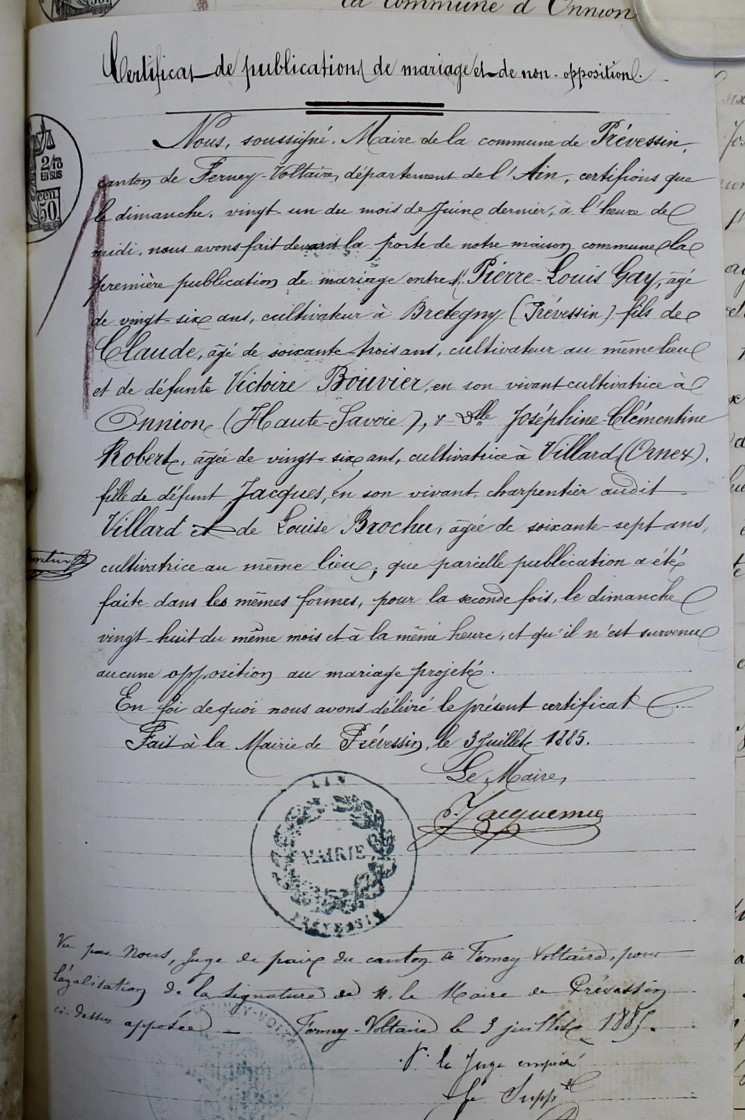 la commune d'Onnion
Certificat de publications de mariage et de non-opposition.
Nous, soussigné, Maire de la commune de Prévessin,
canton de Ferney-Voltaire, département de l'Ain, certifions que
le dimanche, vingt un du mois de Juin dernier, à l'heure de
midi, nous avons fait devant la porte de notre maison commune la
première publication de mariage entre Pierre-Louis Gay, âgé
de vingt-six ans, cultivateur à Bretegny (Prévessin) fils de
Claude, âgé de soixante trois ans, cultivateur au même lieu
et de défunte Victoire Bouvier, en son vivant cultivatrice à
Onnion (Haute-Savoie), & Dlle Joséphine-Clémentine
Robert, âgée de vingt-six ans, cultivatrice à Villard (Ornex),
fille de défunt Jacques, en son vivant, charpentier audit
Villard et de Louise Brochu, âgée de soixante-sept ans,
cultivatrice au même lieu; que pareille publication a été
faite dans les mêmes formes, pour la seconde fois, le dimanche
vingt-huit du même mois et à la même heure, et qu'il n'est survenu
aucune opposition au mariage projeté.
En foi de quoi nous avons délivré le présent certificat
Fait à la Mairie de Prévessin, le 3 Juillet 1885.
Le Maire,
Jacquemie
AIN
MAIRIE
PRÉVESSIN
Vu par Nous, Juge de paix du canton de Ferney-Voltaire, pour
légalisation de la signature de M. le Maire de Prévessin
ci-dessus apposée — Ferney-Voltaire le 3 juillet 1885.
P. le Juge empêché
Le Suppt
2/10
EN SUS
50